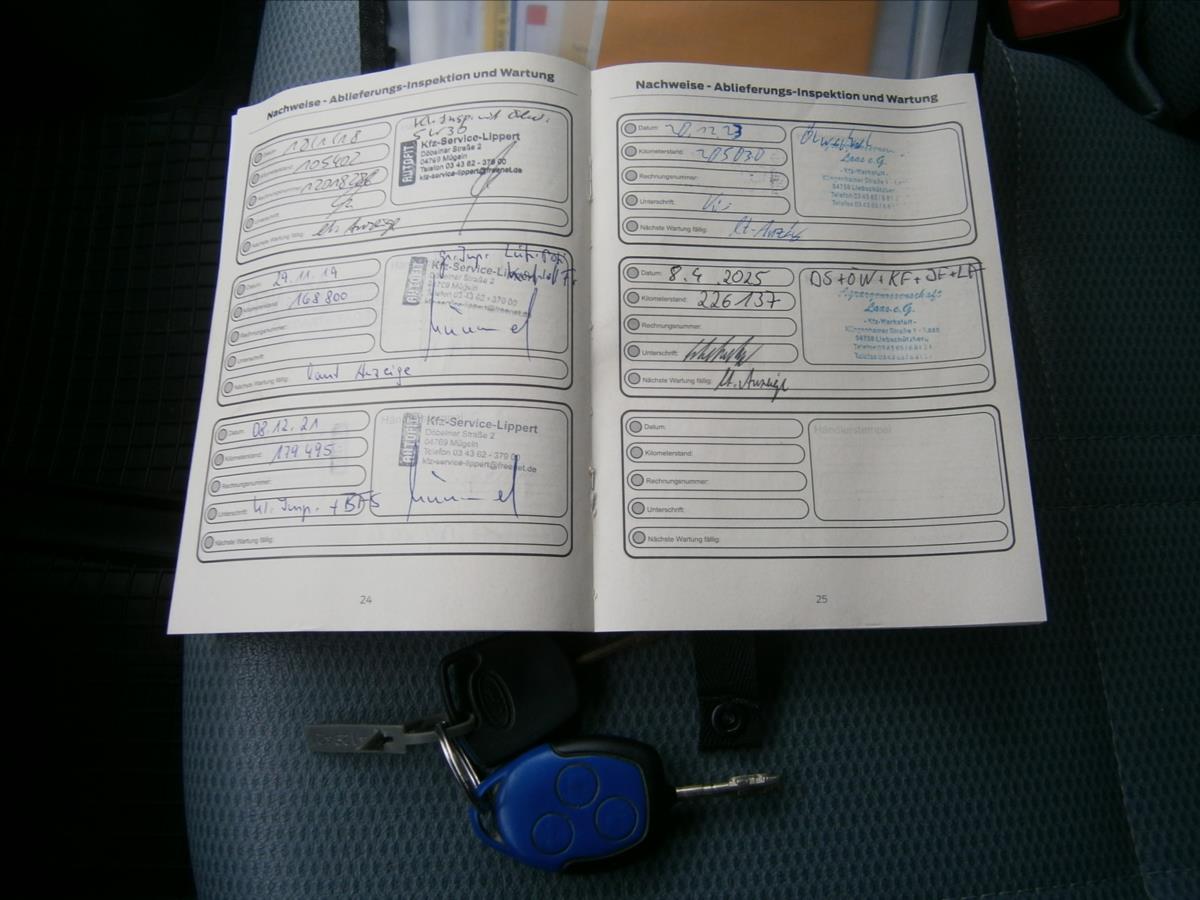 Nachweise - Ablieferungs-Inspektion und Wartung
Kl. Insp. mit Ölw.
5W30
Datum:
Kilometerstand: 105402
Rechnungsnummer:
Unterschrift:
Nächste Wartung fällig: lt. Anzeige
AUTOFIT
Kfz-Service-Lippert
Döbelner Straße 2
04769 Mügeln
Telefon 03 43 62 - 379 00
kfz-service-lippert@freenet.de
Datum: 29.11.19
Kilometerstand: 168800
Rechnungsnummer:
Unterschrift:
Nächste Wartung fällig: laut Anzeige
AUTOFIT
Kfz-Service-Lippert
Döbelner Straße 2
04769 Mügeln
Telefon 03 43 62 - 379 00
kfz-service-lippert@freenet.de
Datum: 08.12.21
Kilometerstand: 179495
Rechnungsnummer:
Unterschrift: Kl. Insp. + BFS
Nächste Wartung fällig:
Händlerstempel
AUTOFIT
Kfz-Service-Lippert
Döbelner Straße 2
04769 Mügeln
Telefon 03 43 62 - 379 00
kfz-service-lippert@freenet.de
24
Nachweise - Ablieferungs-Inspektion und Wartung
Datum: 20.12.23
Kilometerstand: 205030
Rechnungsnummer:
Unterschrift:
Nächste Wartung fällig: lt. Anzeige
Ölwechsel
Laas e.G.
- Kfz-Werkstatt -
04758 Liebschützberg
Datum: 8.4.2025
Kilometerstand: 226137
Rechnungsnummer:
Unterschrift:
Nächste Wartung fällig: lt. Anzeige
DS+ÖW+KF+JF+LF
Agrargenossenschaft
Laas e.G.
- Kfz-Werkstatt -
04758 Liebschützberg
Datum:
Kilometerstand:
Rechnungsnummer:
Unterschrift:
Nächste Wartung fällig:
Händlerstempel
25